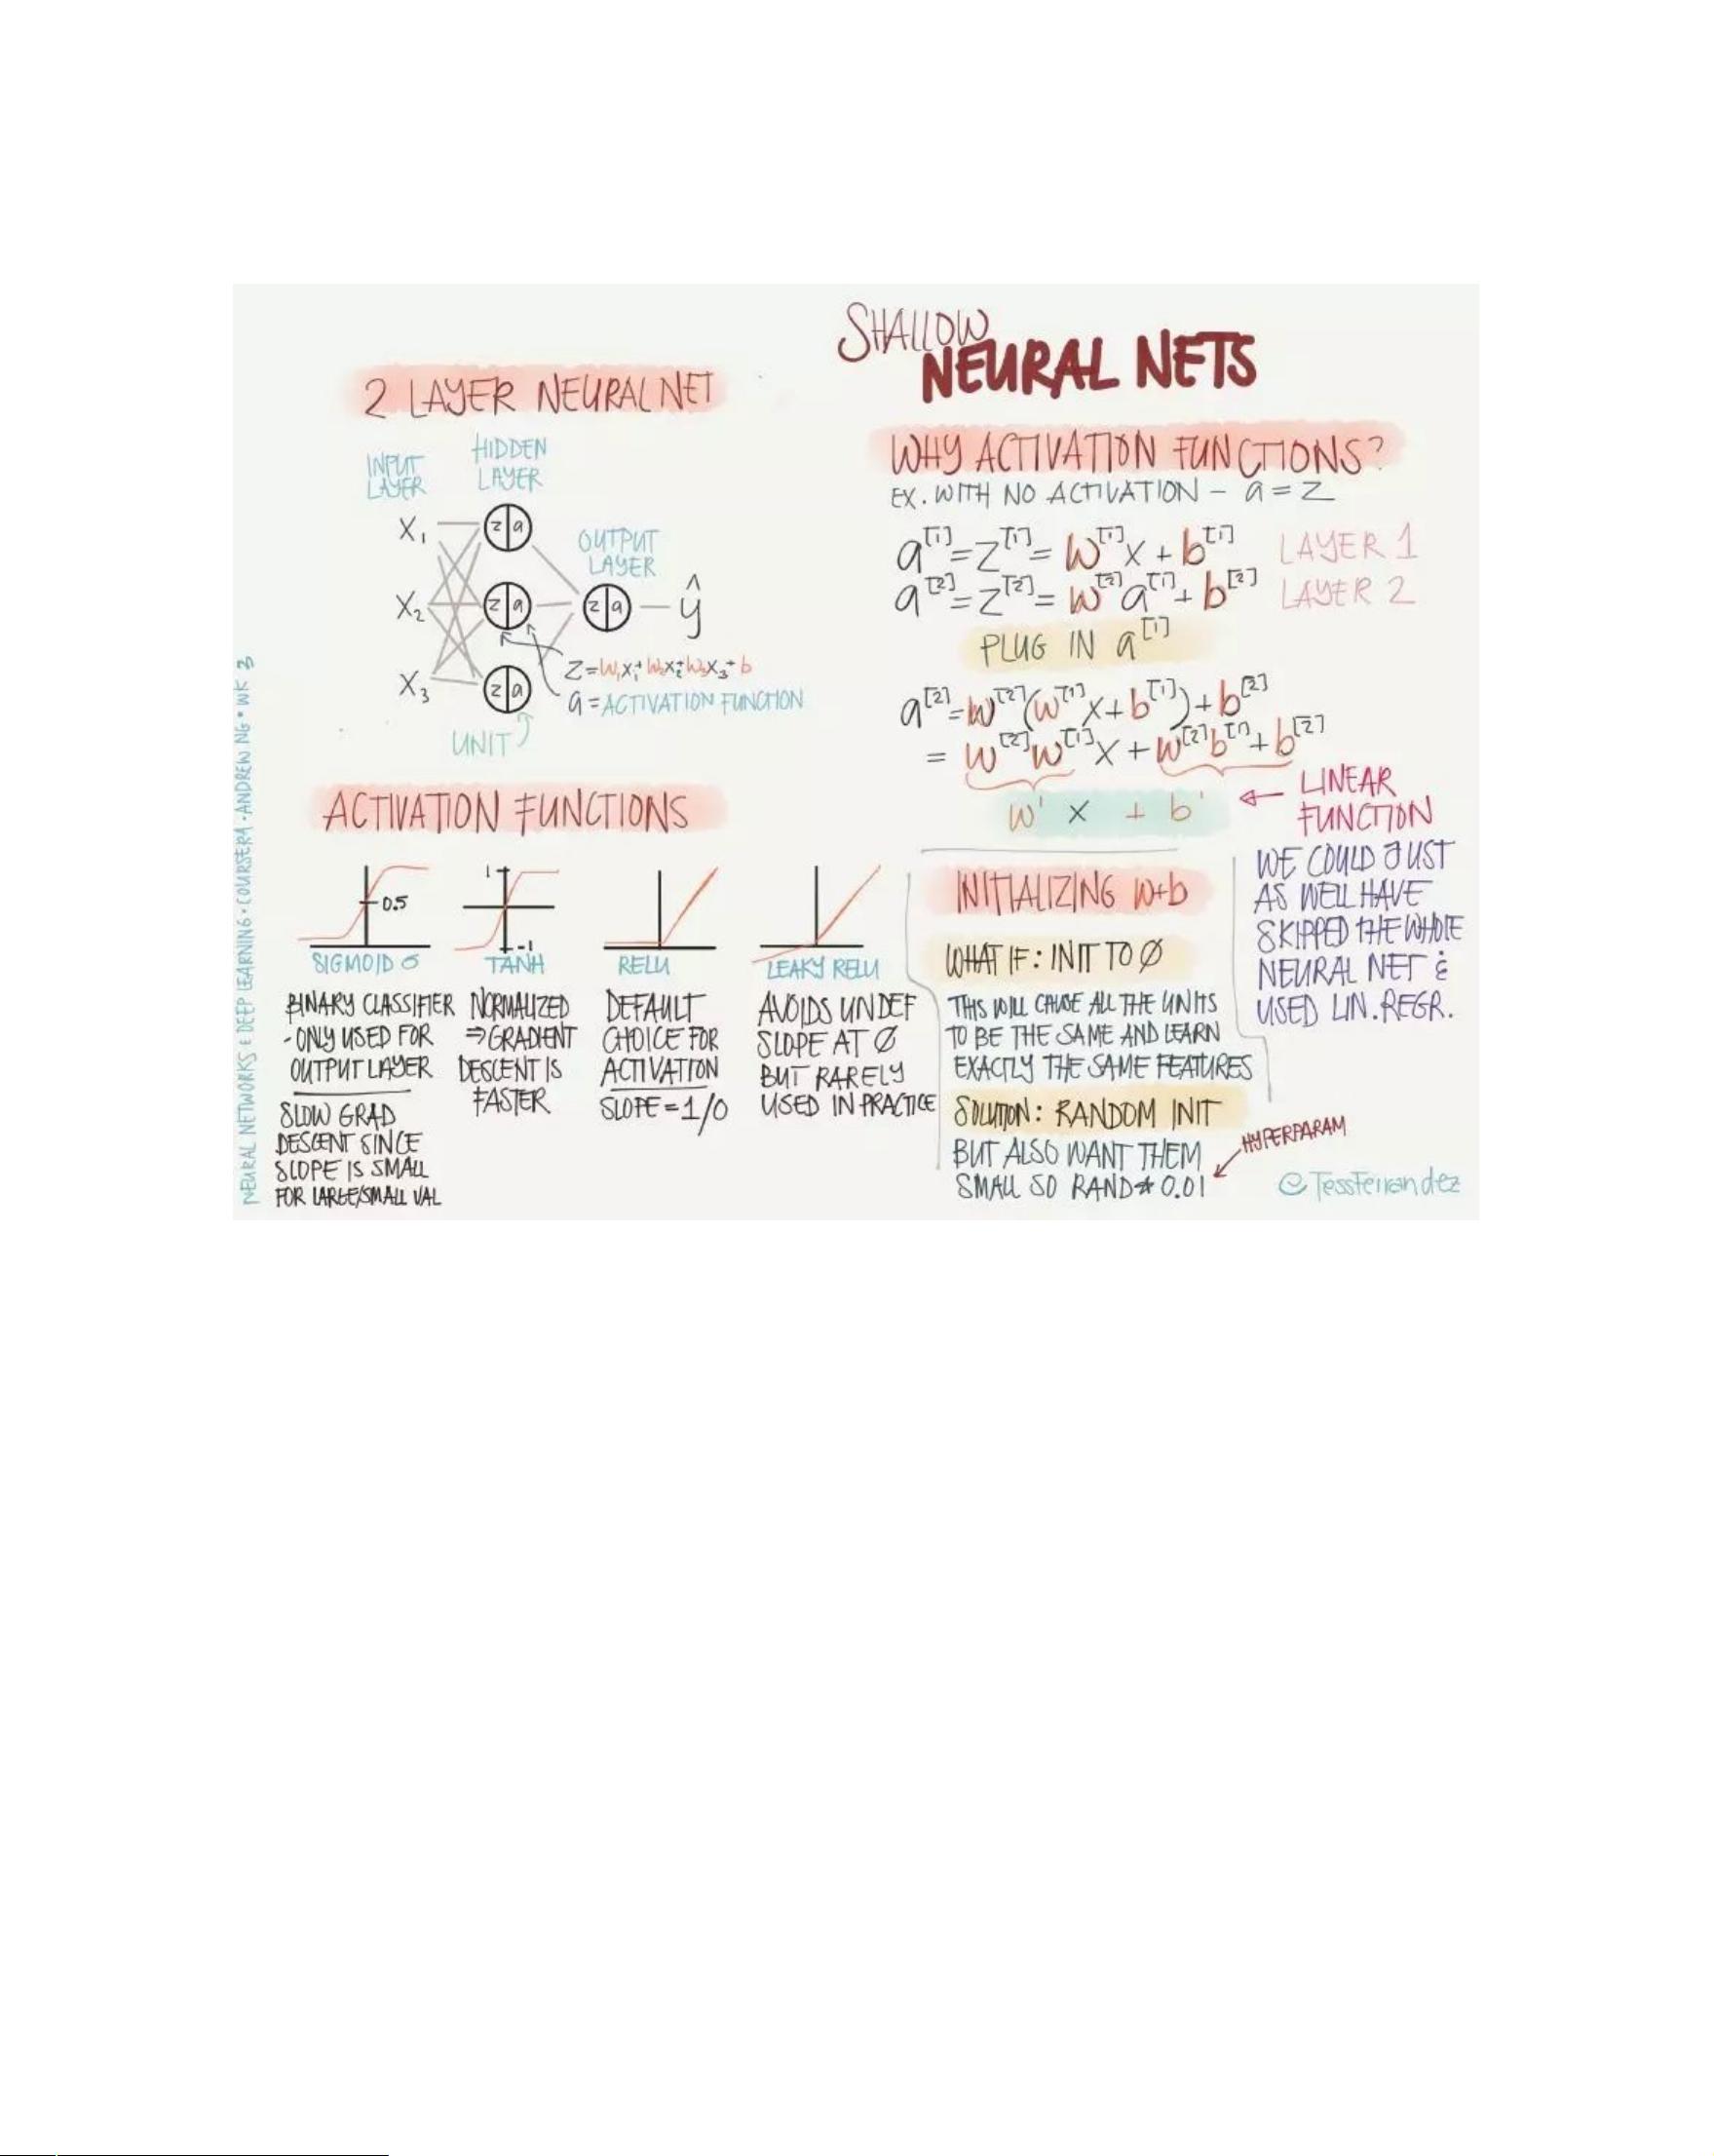 SHALLOW
NEURAL NETS
2 LAYER NEURAL NET
INPUT
LAYER
HIDDEN
LAYER
OUTPUT
LAYER
X₁
z|a
X₂
z|a
z|a
ŷ
X₃
z|a
Z=W₁X₁+W₂X₂+W₃X₃+b
a=ACTIVATION FUNCTION
UNIT
ACTIVATION FUNCTIONS
0.5
SIGMOID σ
BINARY CLASSIFIER
-ONLY USED FOR
OUTPUT LAYER
SLOW GRAD
DESCENT SINCE
SLOPE IS SMALL
FOR LARGE/SMALL VAL
1
-1
TANH
NORMALIZED
⇒GRADIENT
DESCENT IS
FASTER
RELU
DEFAULT
CHOICE FOR
ACTIVATION
SLOPE=1/0
LEAKY RELU
AVOIDS UNDEF
SLOPE AT Ø
BUT RARELY
USED IN PRACTICE
WHY ACTIVATION FUNCTIONS?
EX. WITH NO ACTIVATION - a=Z
a[1]=Z[1]=W[1]X+b[1] LAYER 1
a[2]=Z[2]=W[2]a[1]+b[2] LAYER 2
PLUG IN a[1]
a[2]=W[2](W[1]X+b[1])+b[2]
=W[2]W[1]X+W[2]b[1]+b[2]
W' X + b'
LINEAR
FUNCTION
WE COULD JUST
AS WELL HAVE
SKIPPED THE WHOLE
NEURAL NET &
USED LIN.REGR.
INITIALIZING W+b
WHAT IF: INIT TO Ø
THIS WILL CAUSE ALL THE UNITS
TO BE THE SAME AND LEARN
EXACTLY THE SAME FEATURES
SOLUTION: RANDOM INIT
BUT ALSO WANT THEM
SMALL SO RAND*0.01
HYPERPARAM
@TessFerrandez
NEURAL NETWORKS & DEEP LEARNING · COURSERA · ANDREW NG · WK 3